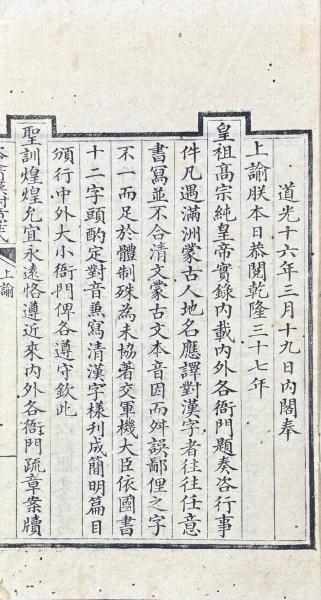 道光十六年三月十九日內閣奉
上諭朕本日恭閱乾隆三十七年
皇祖高宗純皇帝實錄內載內外各衙門題奏咨行事
件凡遇滿洲蒙古人地名應譯對漢字者往往任意
書寫並不合清文蒙古文本音因而舛誤鄙俚之字
不一而足於體制殊為未協著交軍機大臣依國書
十二字頭酌定對音兼寫清漢字樣刊成簡明篇目
頒行中外大小衙門俾各遵守欽此
聖訓煌煌允宜永遠恪遵近來內外各衙門疏章案牘
上諭